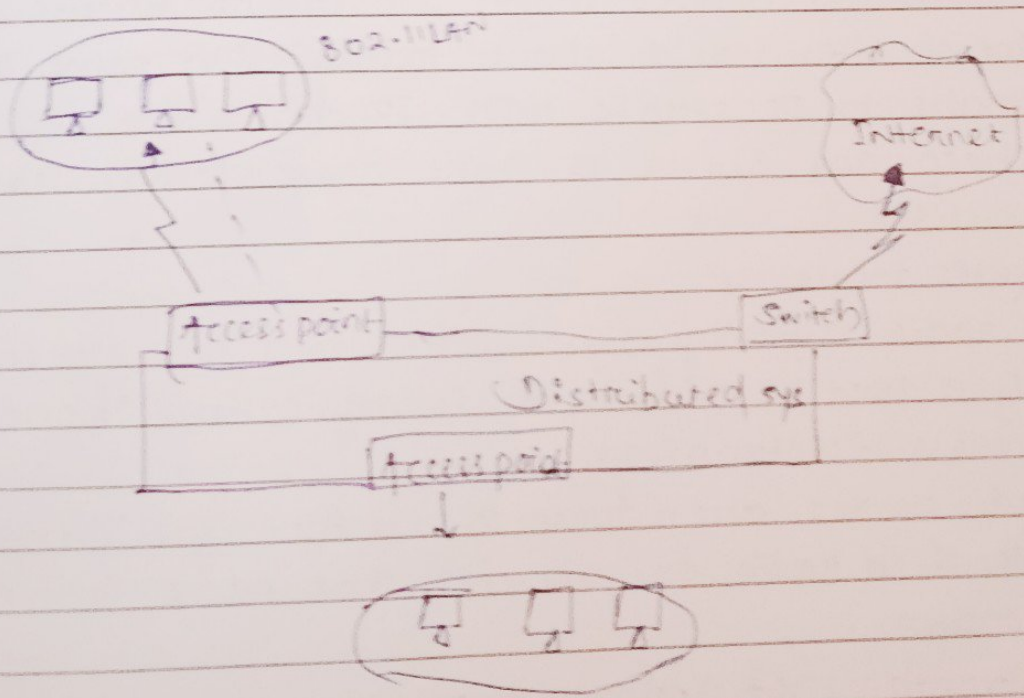 802.11 LAN
Internet
Access point
Switch
Distributed sys
Access point